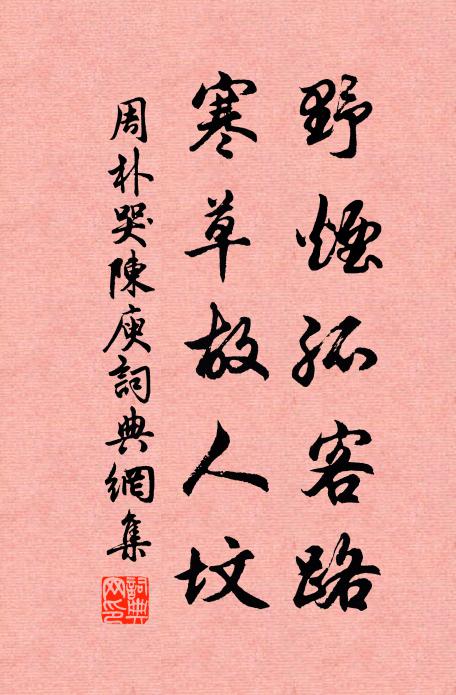 野煙孤客路
寒草故人墳
周朴哭陳庾詞典網集
詞典網印